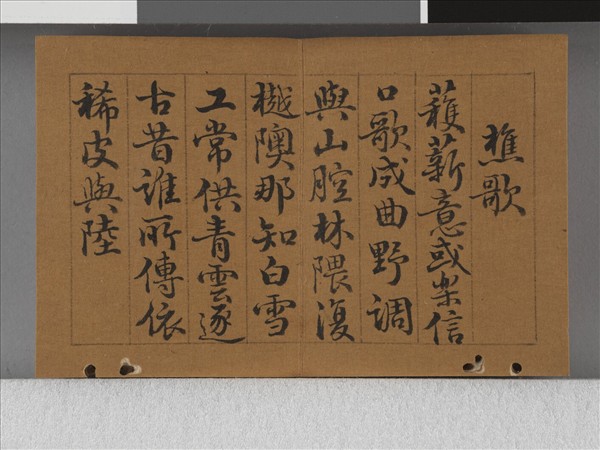 樵歌
穫薪意或樂信
口歌成曲野調
與山腔林隈復
樾隩那知白雪
工常供青雲逐
古昔誰所傳依
稀皮與陸